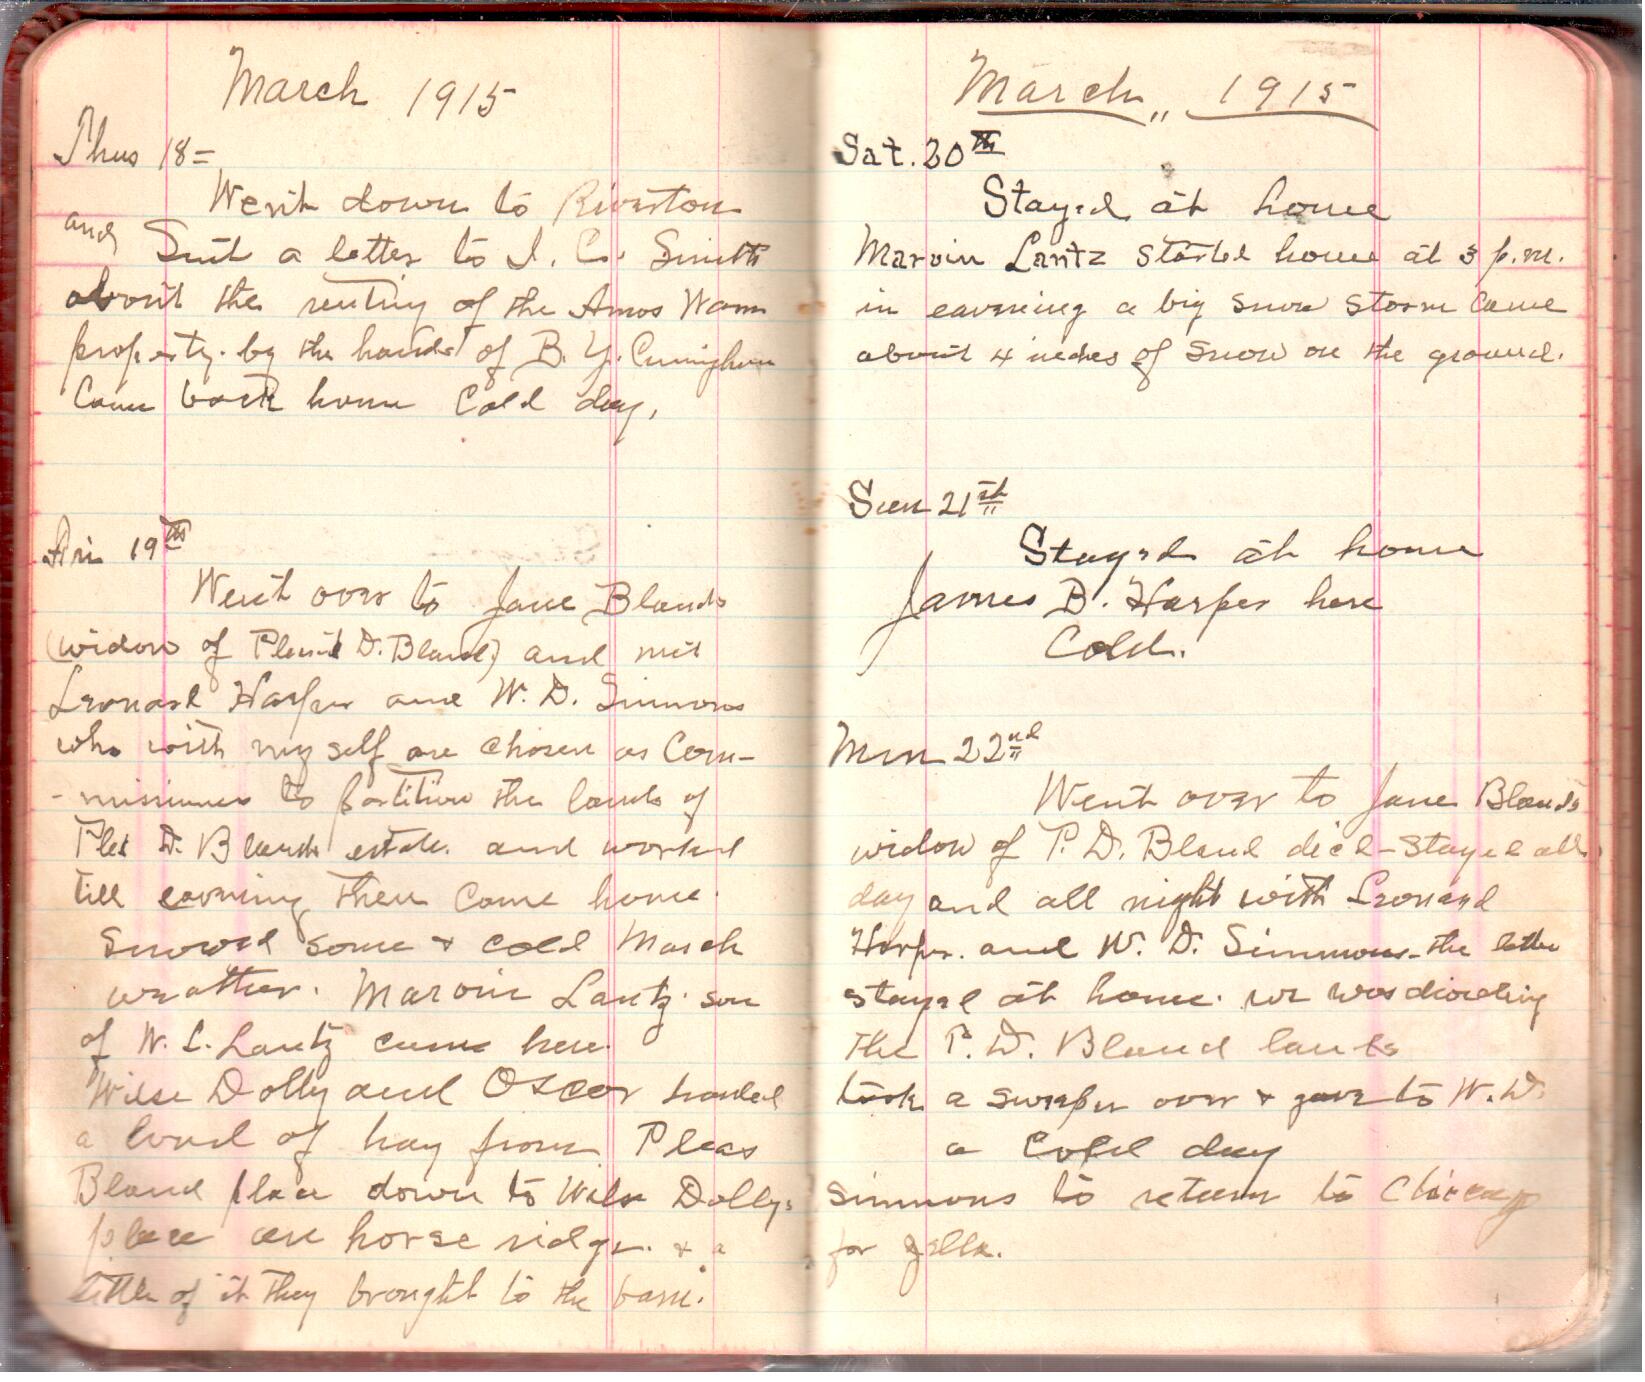 March 1915
Thus 18=
Went down to Riverton
and Sent a letter to I. C. Smith
about the renting of the Amos Wam
property. by the hands of B. Y. Cuningham
Came back home Cold day.
Fri 19th
Went over to Jane Blands
(widow of D. Bland) and met
Leonard Harper and W. D. Simmons
who with my self are chosen as Com-
-missiners to partition the lands of
D. Blands estate. and worked
till eavning then Come home.
Snowed some & cold March
weather. Marvin Lantz. son
of W. L. Lantz came here.
Wilse Dolly and Oscar hauled
a load of hay from Pleas
Bland place down to Wilse Dollys
place on horse ridge. & a
little of it they brought to the barn.
March,, 1915
Sat. 20th
Stayed at home
Marvin Lantz started home at 3 p.m.
in eavening a big snow storm Came
about 4 inches of snow on the ground.
Sun 21st
Stayed at home
James B. Harper here
Cold.
Mon 22nd
Went over to Jane Blands
widow of P. D. Bland dicd- Stayed all
day and all night with Leonard
Harper. and W. D. Simmons- the latter
stayed at home. we was dividing
the P. D. Bland lands
took a sweeper over & gave to W. D.
a Cold day
Simmons to return to Chicago
for